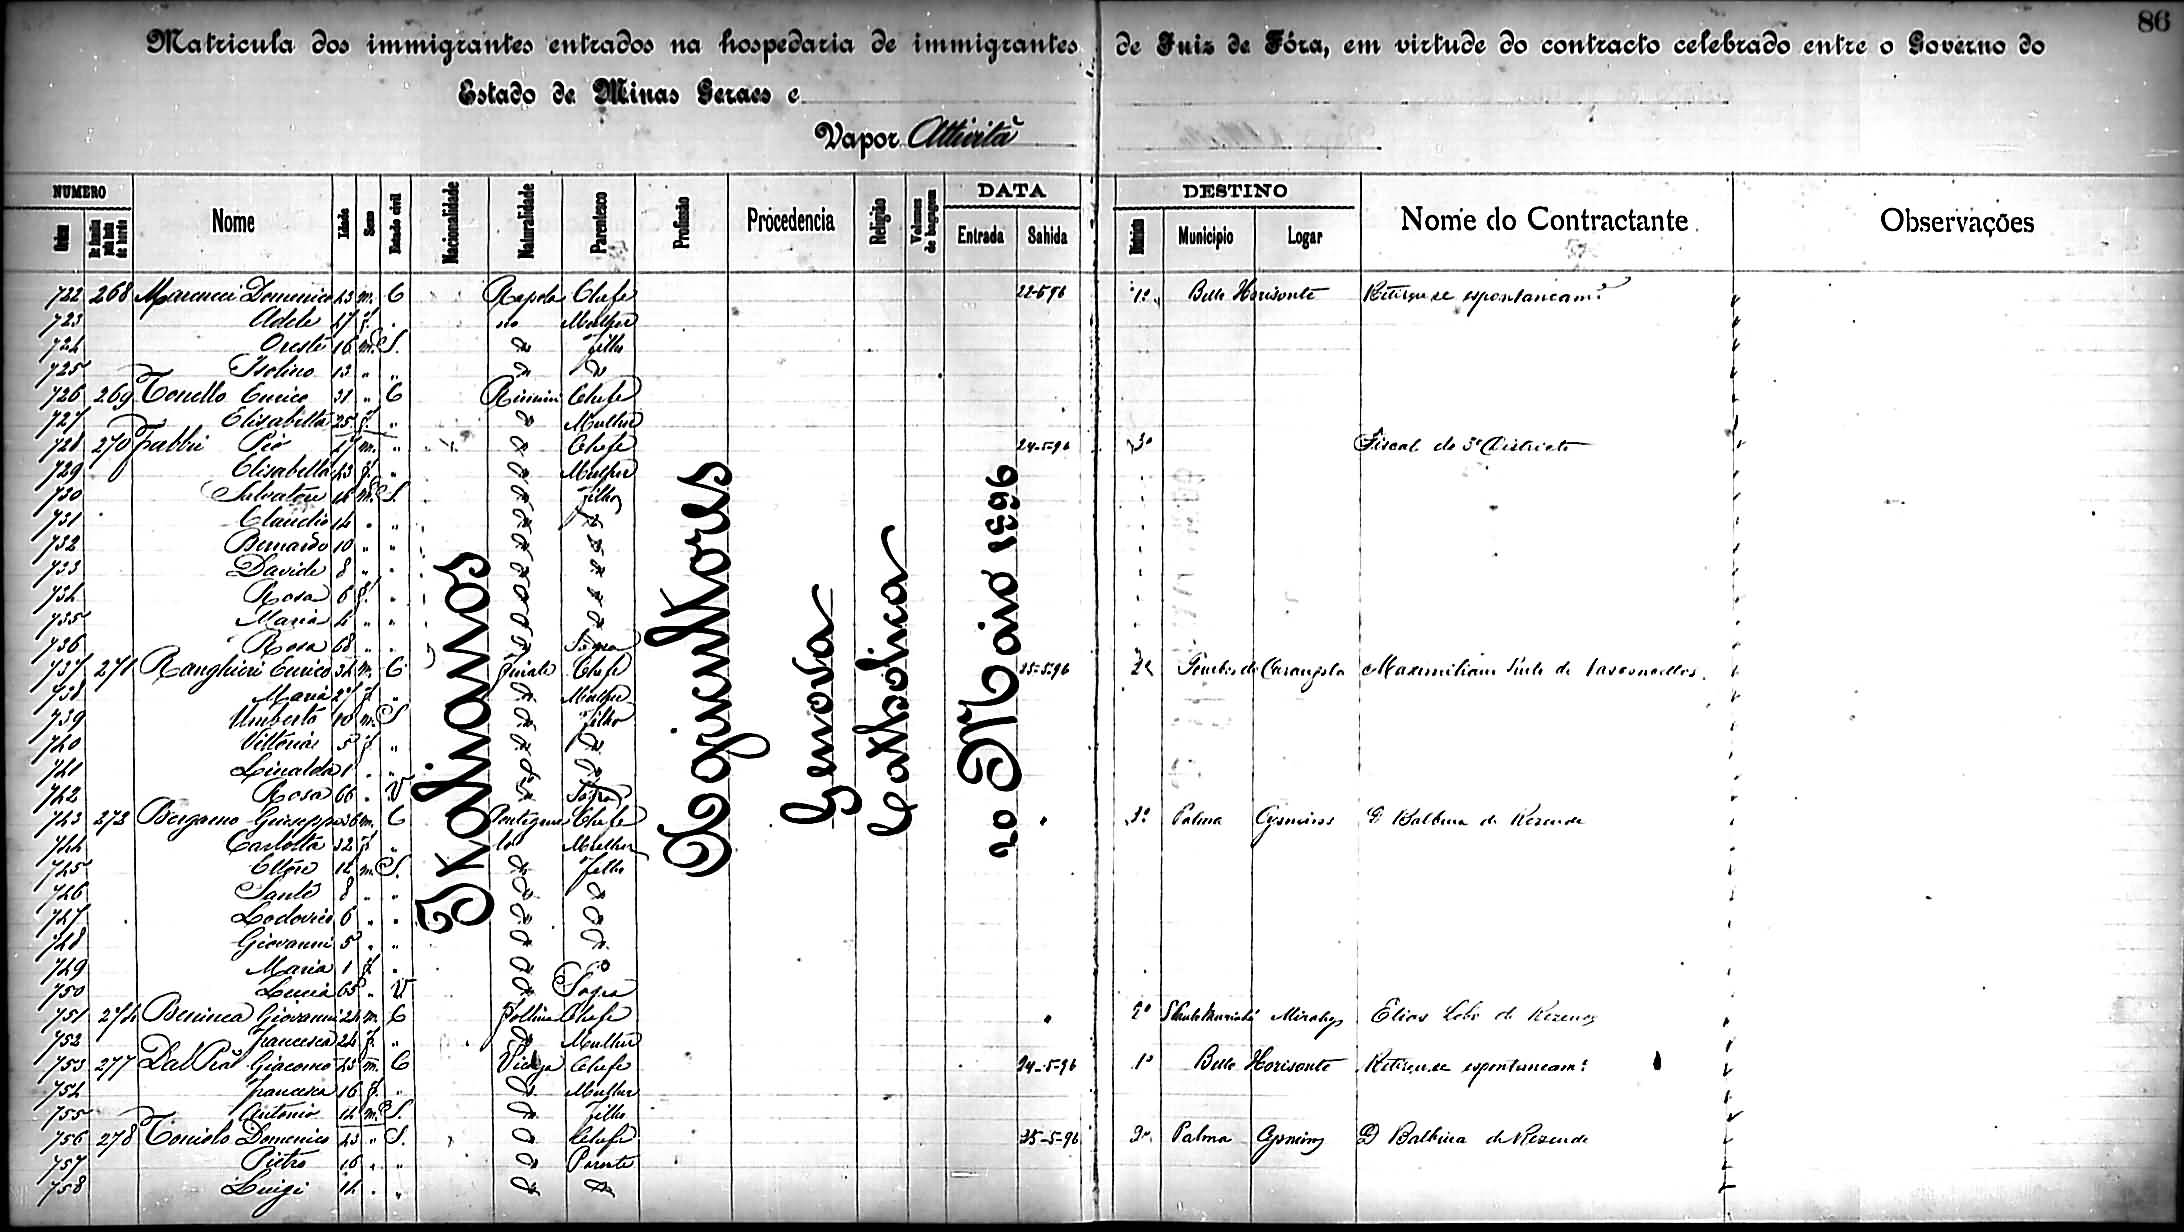 86
Matricula dos immigrantes entrados na hospedaria de immigrantes de Juiz de Fóra, em virtude do contracto celebrado entre o Governo do
Estado de Minas Geraes e
Vapor Attività
NUMERO Nome Idade Sexo Estado civil Nacionalidade Naturalidade Parentesco Profissão Procedencia Religião Volumes de bagagem DATA DESTINO Nome do Contractante Observações
Ordem Entrada Sahida Districto Municipio Logar
Italianos
Agricultores
Genova
Catholica
20 Maio 1896
722 268 Domenico 43 m. C Chefe 22-5-96 1º Bello Horisonte Retirou-se espontaneam.e
723 Adele 47 f. " Mulher
724 Oreste 16 m. S. Filho
725 Isolino 13 " "
726 269 Tonello Enrico 31 " C Rimini Chefe
727 Elisabetta 25 f. " Mulher
728 270 Fabbri Pio 47 m. " Chefe 24-5-96 3º Fiscal do 3º Districto
729 Elisabetta 43 f. " Mulher
730 Salvatore 16 m. S Filho
731 Claudio 14 " "
732 Bernardo 10 " "
733 Davide 8 " "
734 Rosa 6 f. "
735 Maria 4 " "
736 Rosa 68 " " Sogra
737 271 Ranghieri Enrico 34 m. C Finale Chefe 25-5-96 2º Tombos do Carangola Maximiliano Pinto de Vasconcellos
738 Maria 27 f. " Mulher
739 Umberto 10 m. S Filho
740 Vittoria 5 f. "
741 Linalda 1 " "
742 Rosa 66 " V Sogra
743 272 Bergamo Giuseppe 36 m. C Chefe " 3º Palma Cysneiros D Balbina de Rezende
744 Carlotta 32 f. " Mulher
745 Ettore 14 m. S. Filho
746 Santo 8 " "
747 Lodovico 6 " "
748 Giovanni 5 " "
749 Maria 1 f. "
750 Lucia 65 " V Sogra
751 274 Giovanni 24 m. C Follina Chefe " 2º Mirahy Elias Lobo de Rezende
752 Francesca 24 f. " Mulher
753 277 Dal Prà Giacomo 45 m. C Chefe 24-5-96 1º Bello Horisonte Retirou-se espontaneam.e
754 Francesca 16 f. " Mulher
755 Antonio 14 m. S. Filho
756 278 Toniolo Domenico 43 " S. Chefe 25-5-96 3º Palma Cysneiros D Balbina de Rezende
757 Pietro 16 " " Parente
758 Luigi 14 " "